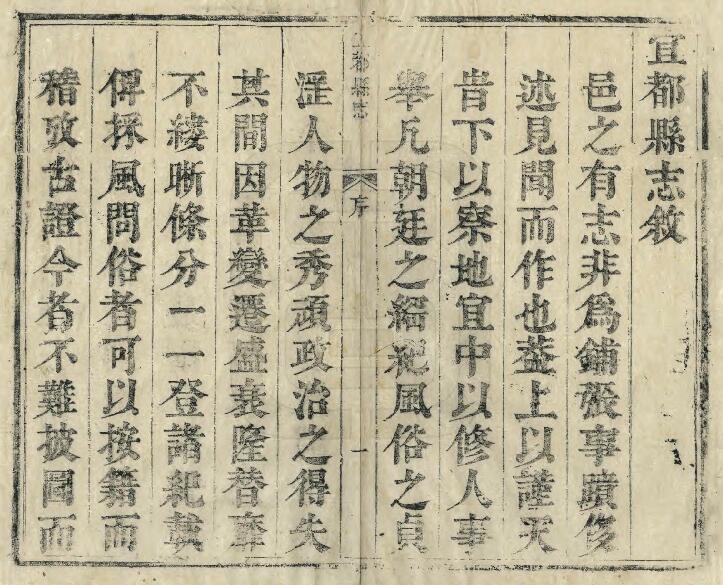 宜都縣志敘
邑之有志非爲鋪張事蹟侈
述見聞而作也葢上以謹天
旹下以察地宜中以修人事
舉凡朝廷之綱紀風俗之貞
宜都縣志
序
一
淫人物之秀頑政治之得失
其間因革變遷盛衰隆替靡
不縷晰條分一一登諸紀載
俾採風問俗者可以按籍而
稽攷古證今者不難披圖而